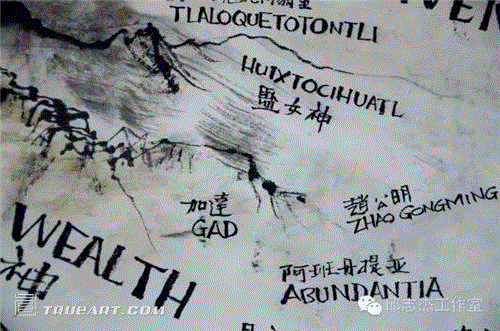 TLALOQUETOTONTLI
VEN
HUIXTOCIHUATL
女神
加達
GAD
趙公明
ZHAO GONGMING
WEALTH
神
阿班丹提亚
ABUNDANTIA
TRUEART.COM
邱志杰工作室